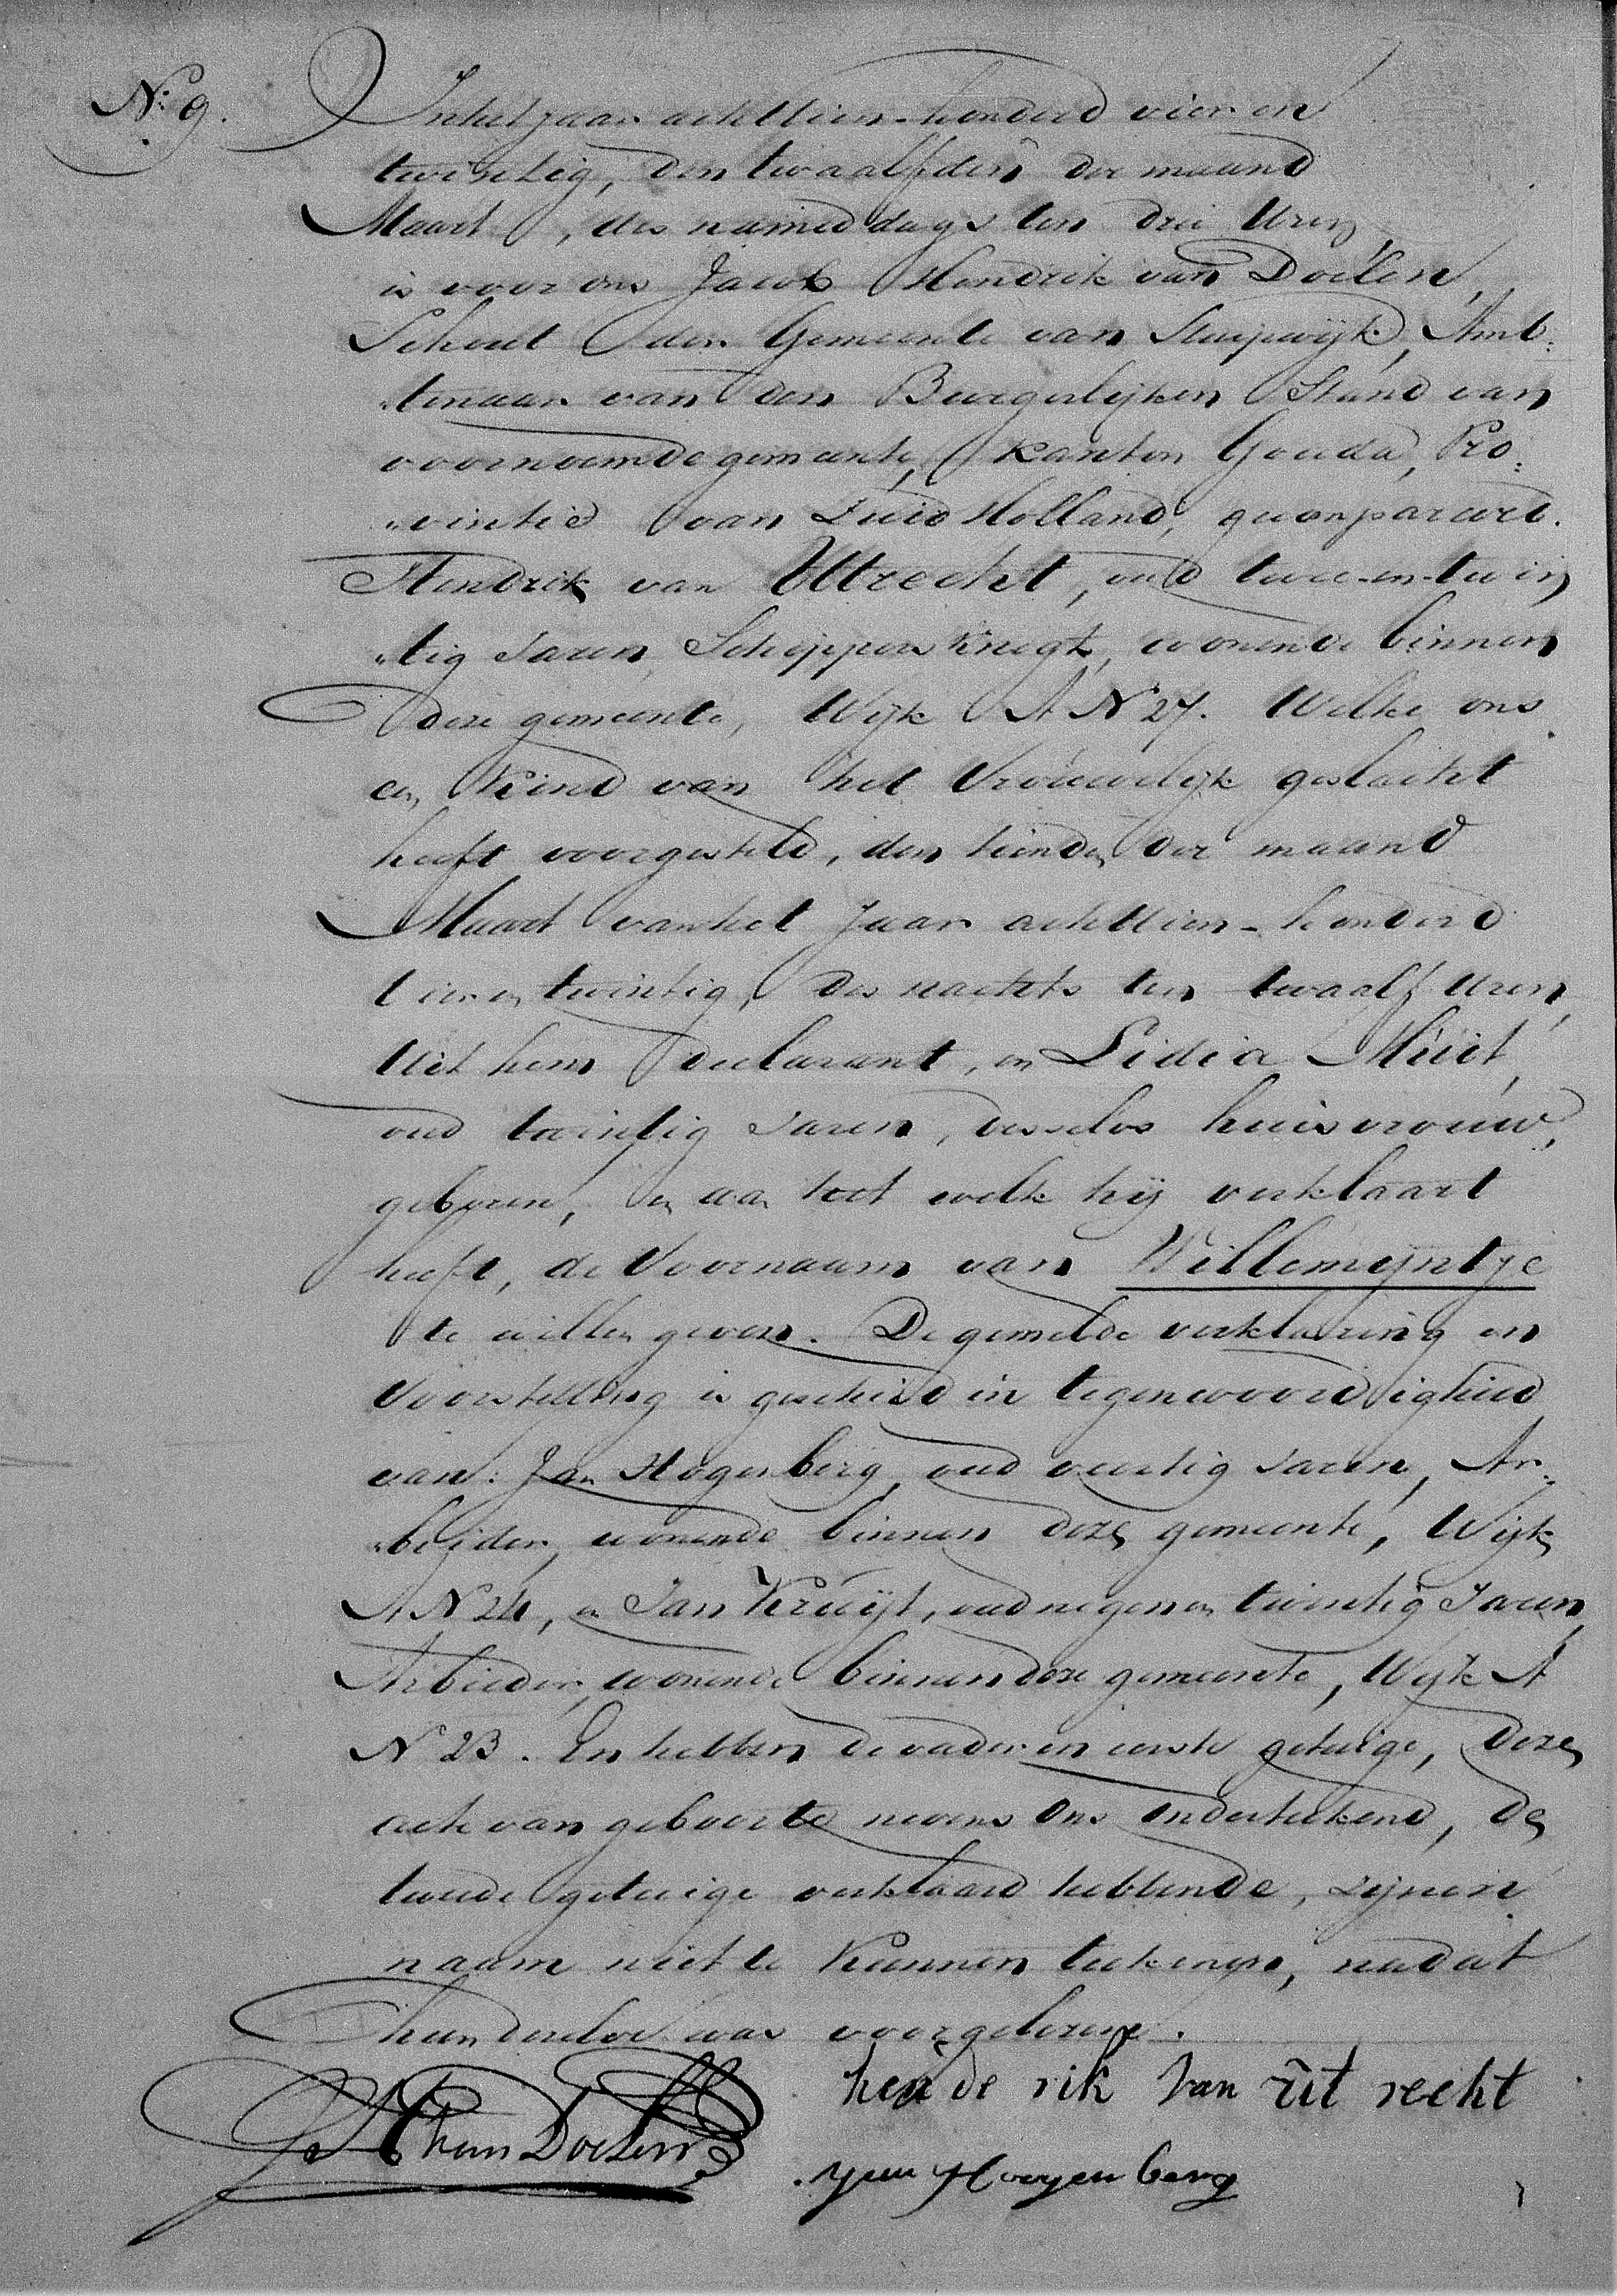 N<sup>o</sup> 9. In het jaar achttien-honderd vier en
twintig, den twaalfden der maand
Maart, des namiddags ten drie Uren,
is voor ons Jacob Hendrik van Doelen,
Schout der Gemeente van Sluipwijk, Amb:
"tenaar van den Burgerlijken Stand van
voornoemde gemeente, Kanton Gouda, Pro:
"vintie van Zuid Holland, gecompareerd.
Hendrik van Uttrecht, oud twee-en-twin
"tig Jaren, Schippers knegt, wonende binnen
deze gemeente, Wijk A N 27. Welke ons
een Kind van het Vrouwelijk geslacht
heeft voorgesteld, den tienden der maand
Maart van het Jaar achttien-honderd
vier en twintig, des nachts ten twaalf Uren,
Uit hem declarant, en Lidia
oud twintig Jaren, desselvs huisvrouw,
geboren, en aan het welk hij verklaart
heeft, de Voornaam van Willemijntje
te willen geven. De gemelde verklaring en
Voorstelling is geschied in tegenwoordigheid
van: Jan Hogenberg, oud veertig Jaren, Ar:
"beider, wonende binnen deze gemeente, Wijk
A N 24, en Jan Kruijt, oud negen en twintig Jaren,
Arbeider, wonende binnen deze gemeente, Wijk A
N 23. En hebben de vader en eerste getuige, deze
acte van geboorte nevens Ons Ondertekend, de
tweede getuige verklaard hebbende, zijnen
naam niet te Kunnen teekenen, nadat
hun dezelve was voorgelezen.
hende rik van ut recht
JH van Doelen
Jan Hoogenberg